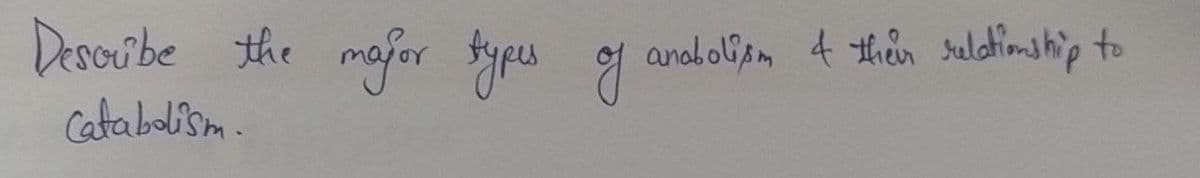 Describe the major types of anabolism & their relationship to
Catabolism.